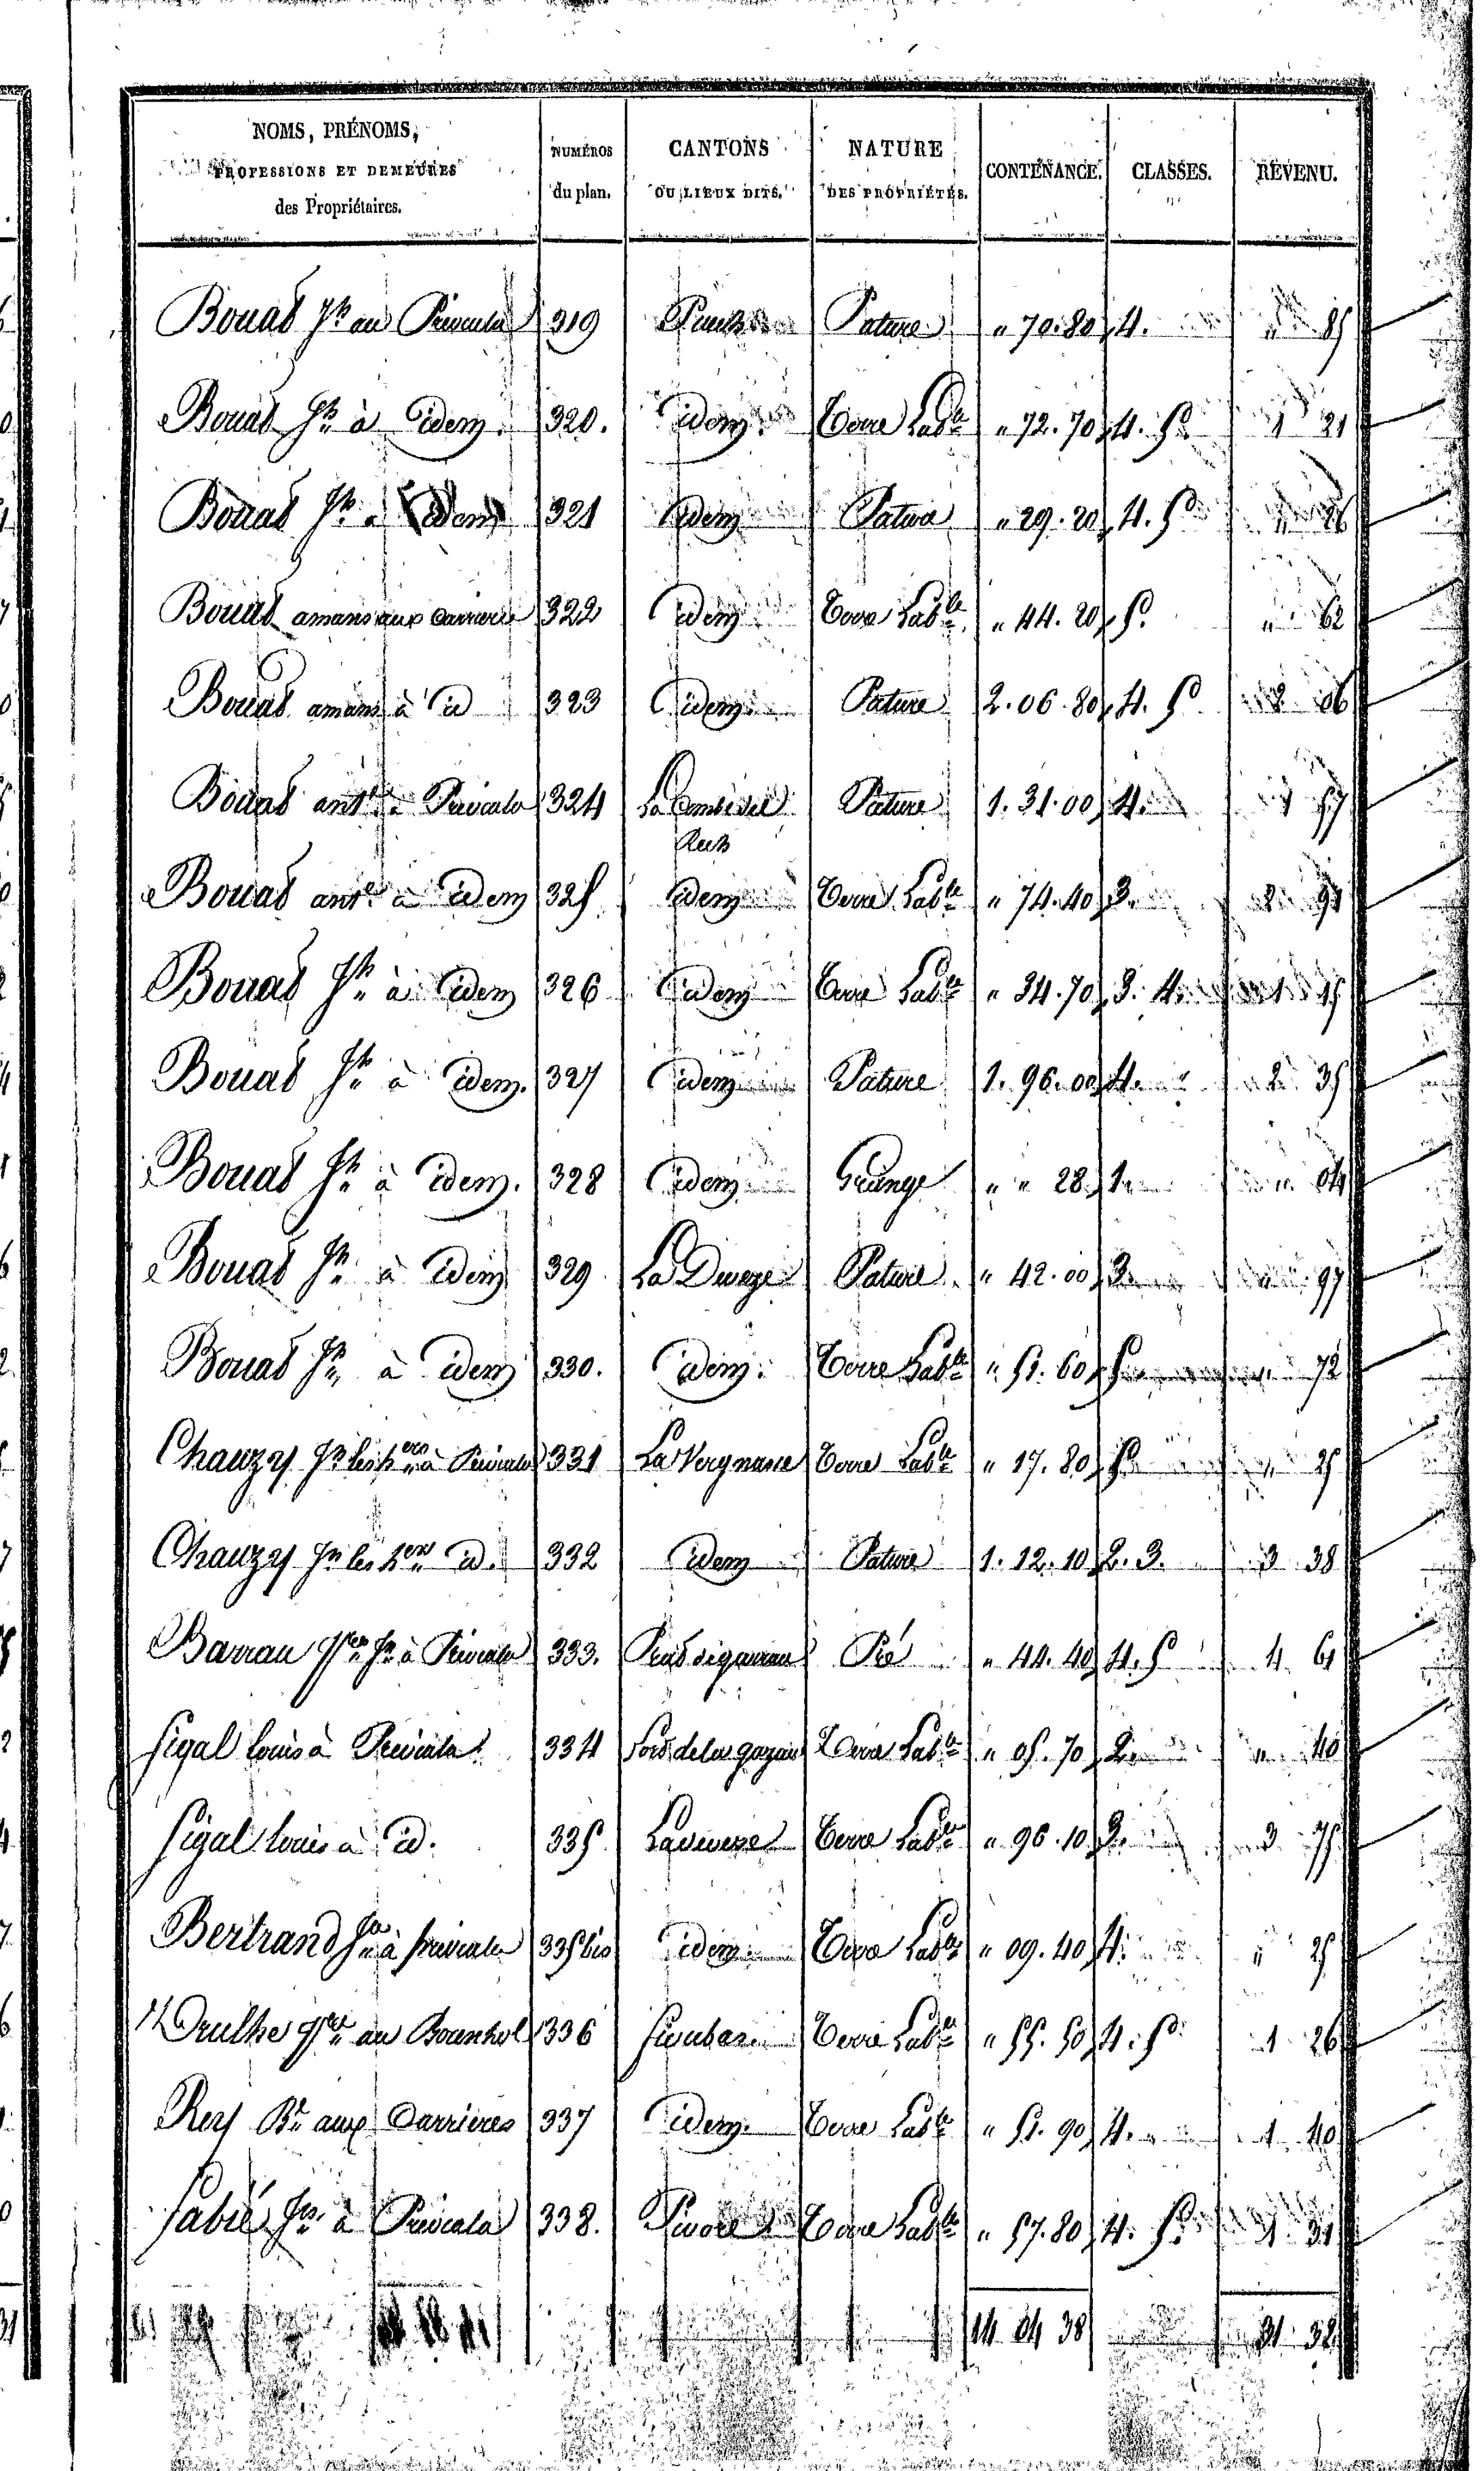 NOMS, PRÉNOMS, PROFESSIONS ET DEMEURES des Propriétaires. NUMÉROS du plan. CANTONS OU LIEUX DITS. NATURE DES PROPRIÉTÉS. CONTENANCE. CLASSES. REVENU.
Bouat Jh au 319 Pature " 70. 80 4. " 85
Bouat Jh à idem 320. idem Terre Lable " 72. 70 4. 5e 1 21
Bouat Jh à idem 321 idem Pature " 29. 20 4. 5e " 26
Bouat amans aux carrieres 322 idem Terre Lable " 44. 20 5e " 62
Bouat amans à id 323 idem Pature 2. 06. 80 4. 5e 2 06
Bouat ante à 324 La Combe del Pature 1. 31. 00 4. 1 57
Bouat ante à idem 325 idem Terre Lable " 74. 40 3. 2 91
Bouat Jh à idem 326 idem Terre Lable " 34. 70 3. 4. 1 15
Bouat Jh à idem. 327 idem Pature 1. 96. 00 4. 2 35
Bouat Jh à idem. 328 idem Grange " " 28 1. " 04
Bouat Jh à idem 329 La Deveze Pature " 42. 00 3. " 97
Bouat Jh à idem 330. idem. Terre Lable " 51. 60 5e " 72
Chauzy Jn les hers à 331 La Vergnasse Terre Lable " 17. 80 5e " 25
Chauzy Jn les hers id. 332 idem Pature 1. 12. 10 2. 3. 3 38
Barrau à 333. Pré " 44. 40 4. 5 4 61
Sigal louis à 334 Terre Lable " 05. 70 2. " 40
Sigal louis à id. 335 Ladeveze Terre Lable " 96. 10 3. 3 75
Bertrand à 335 bis idem Terre Lable " 09. 40 4. " 25
Drulhe au Bournhol 336 Terre Lable " 55. 50 4. 5e 1 26
Rey Bte aux Carrieres 337 idem. Terre Lable " 51. 90 4. 1 40
Fabié à 338. Terre Lable " 57. 80 4. 5e 1 31
14 04 38 31 32